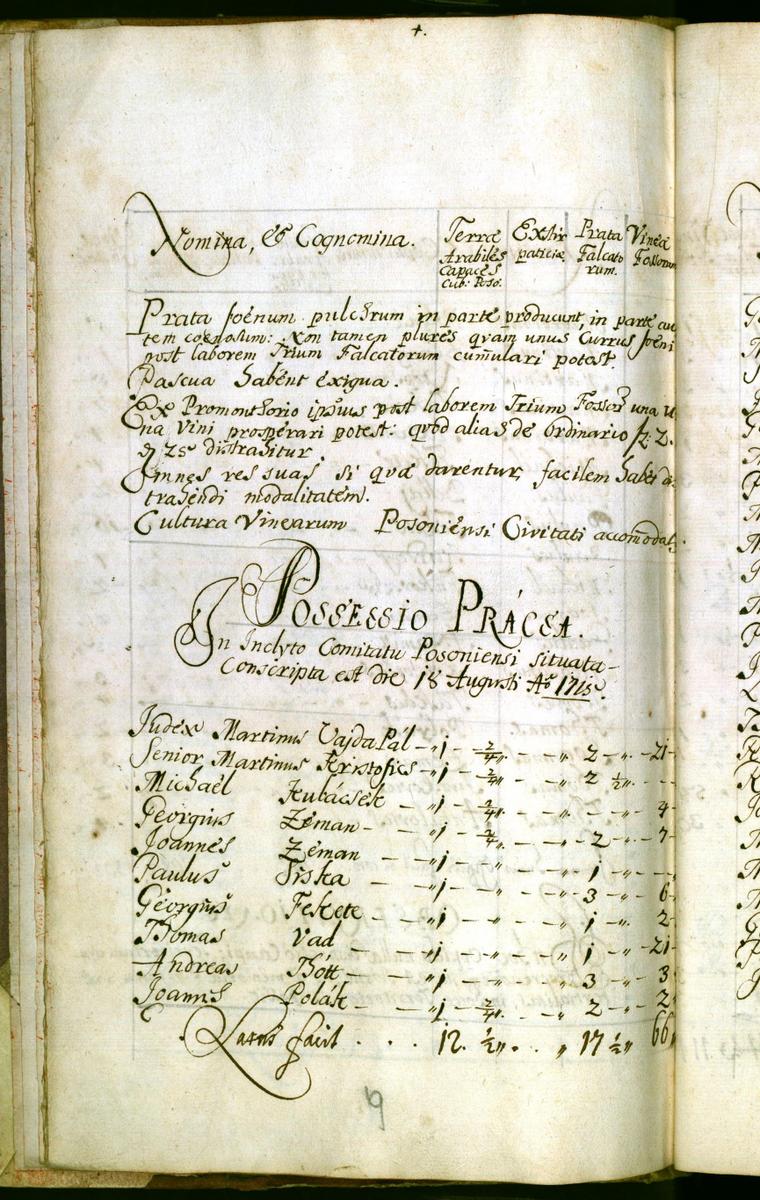 4.
Nomina, & Cognomina. Terræ Arabiles Capaces Cub: Poso: Extirpatitiæ Prata Falcatorum. Vineæ Fossorum
Prata foenum pulchrum in parte producunt, in parte au
tem coenosum: Non tamen plures quam unus Currus foeni
post laborem Trium Falcatorum cumulari potest.
Pascua habent exigua.
Ex Promonthorio ipsius post laborem Trium Fossor: una U
na Vini prosperari potest: quod alias de Ordinario f: 2.
25 distrahitur
Omnes res suas si quæ darentur, facilem habet dis
trahendi modalitatem.
Cultura Vinearum Posoniensi Civitati accomodat
Possessio Prácsa.
In Inclyto Comitatu Posoniensi situata
Conscripta est die 18 Augusti Ao 1715.
Judex Martinus Vajda Pál - " 1 - 2/4 " - - " 2 - " - 21
Senior Martinus Kristofics - " 1 - 2/4 " - - " 2 1/2 " - -
Michaël Kubácsek - " 1 - 2/4 " - - - - 4
Georgius Zeman - " 1 - 2/4 " - - 2 - - 7
Joannes Zeman - " 1 - - - - 1 - - -
Paulus Siska - " 1 - - - - 3 - - 6
Georgius Fekete - " 1 - - - - 1 - " - 2
Thomas Vad - " 1 - - - - 1 - " - 21
Andreas Thótt - " 1 - - - - 3 - - 3
Joannes Polák - " 1 - 2/4 " - - 2 - " - 2
Latus facit . . . 12. 1/2 " . . " 17 1/2 " 66
9